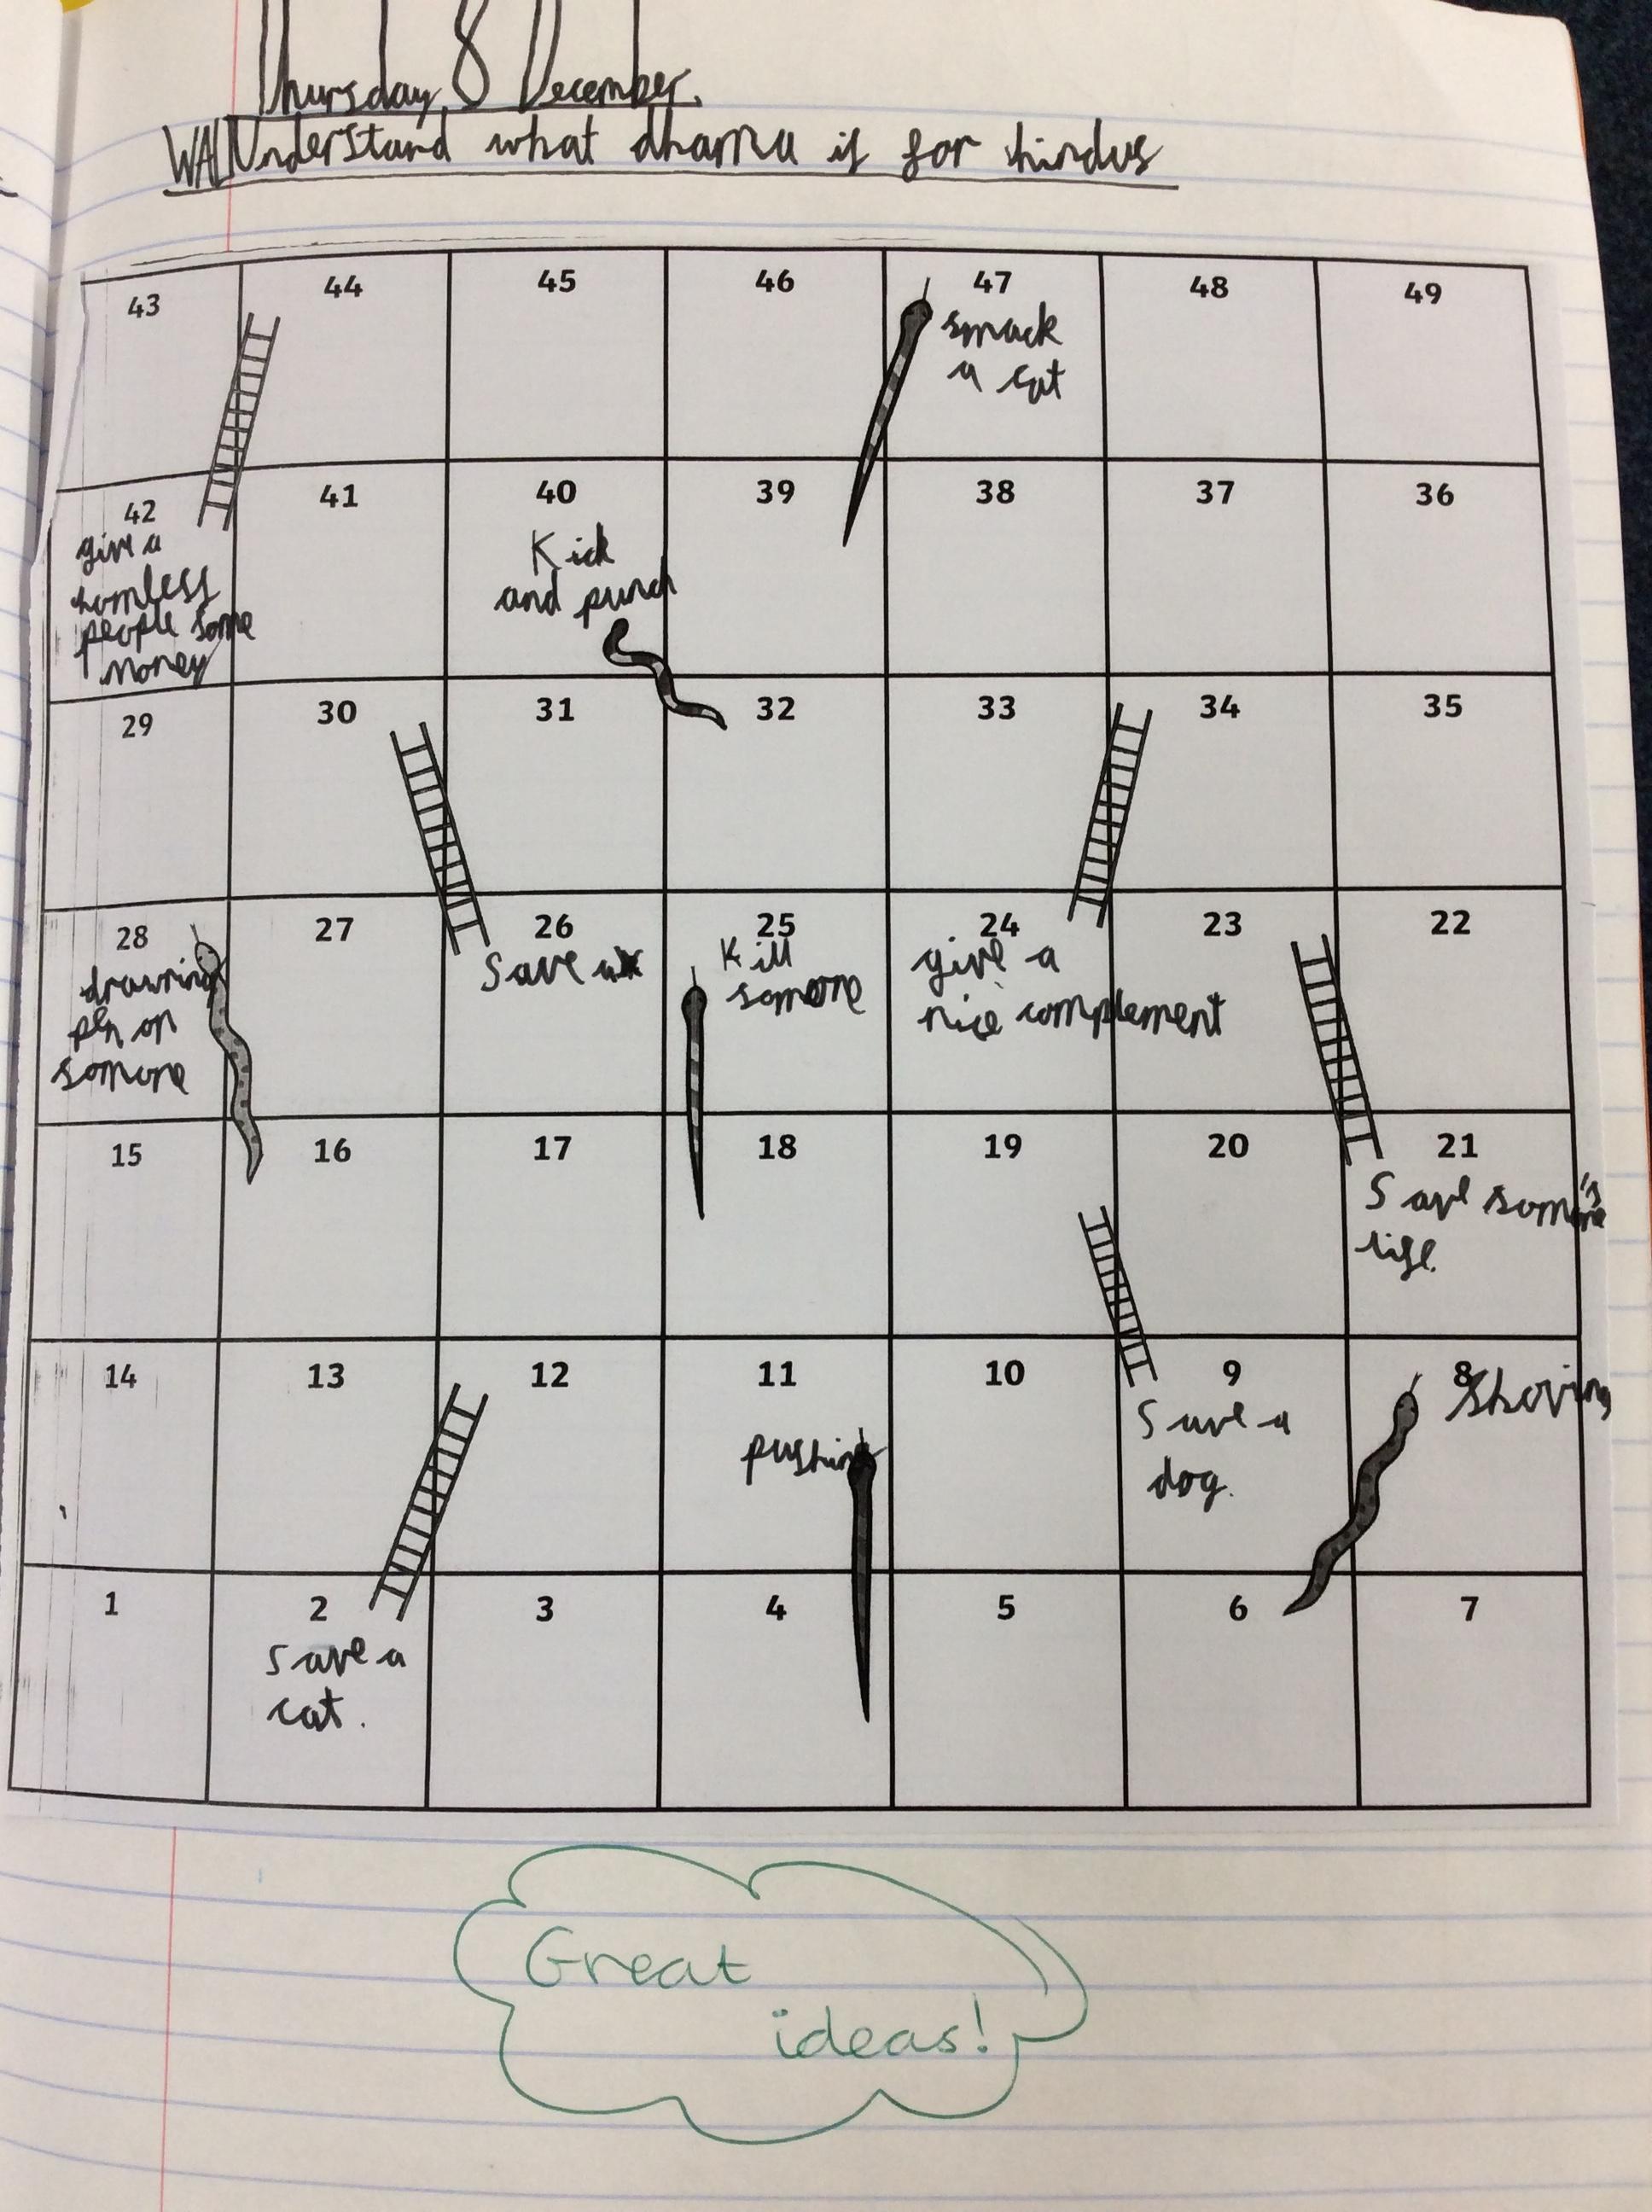 Thursday 8 December.
WALT Understand what dharma is for hindus
43 44 45 46 47 48 49
smack
a cat
42 41 40 39 38 37 36
give a
homless
people some
money
Kick
and punch
29 30 31 32 33 34 35
28 27 26 25 24 23 22
drawing
pen on
somone
Save a
Kill
somone
give a
nice complement
15 16 17 18 19 20 21
Save somone's
life.
14 13 12 11 10 9 8
pushing
Save a
dog.
Shoving
1 2 3 4 5 6 7
save a
cat.
Great
ideas!